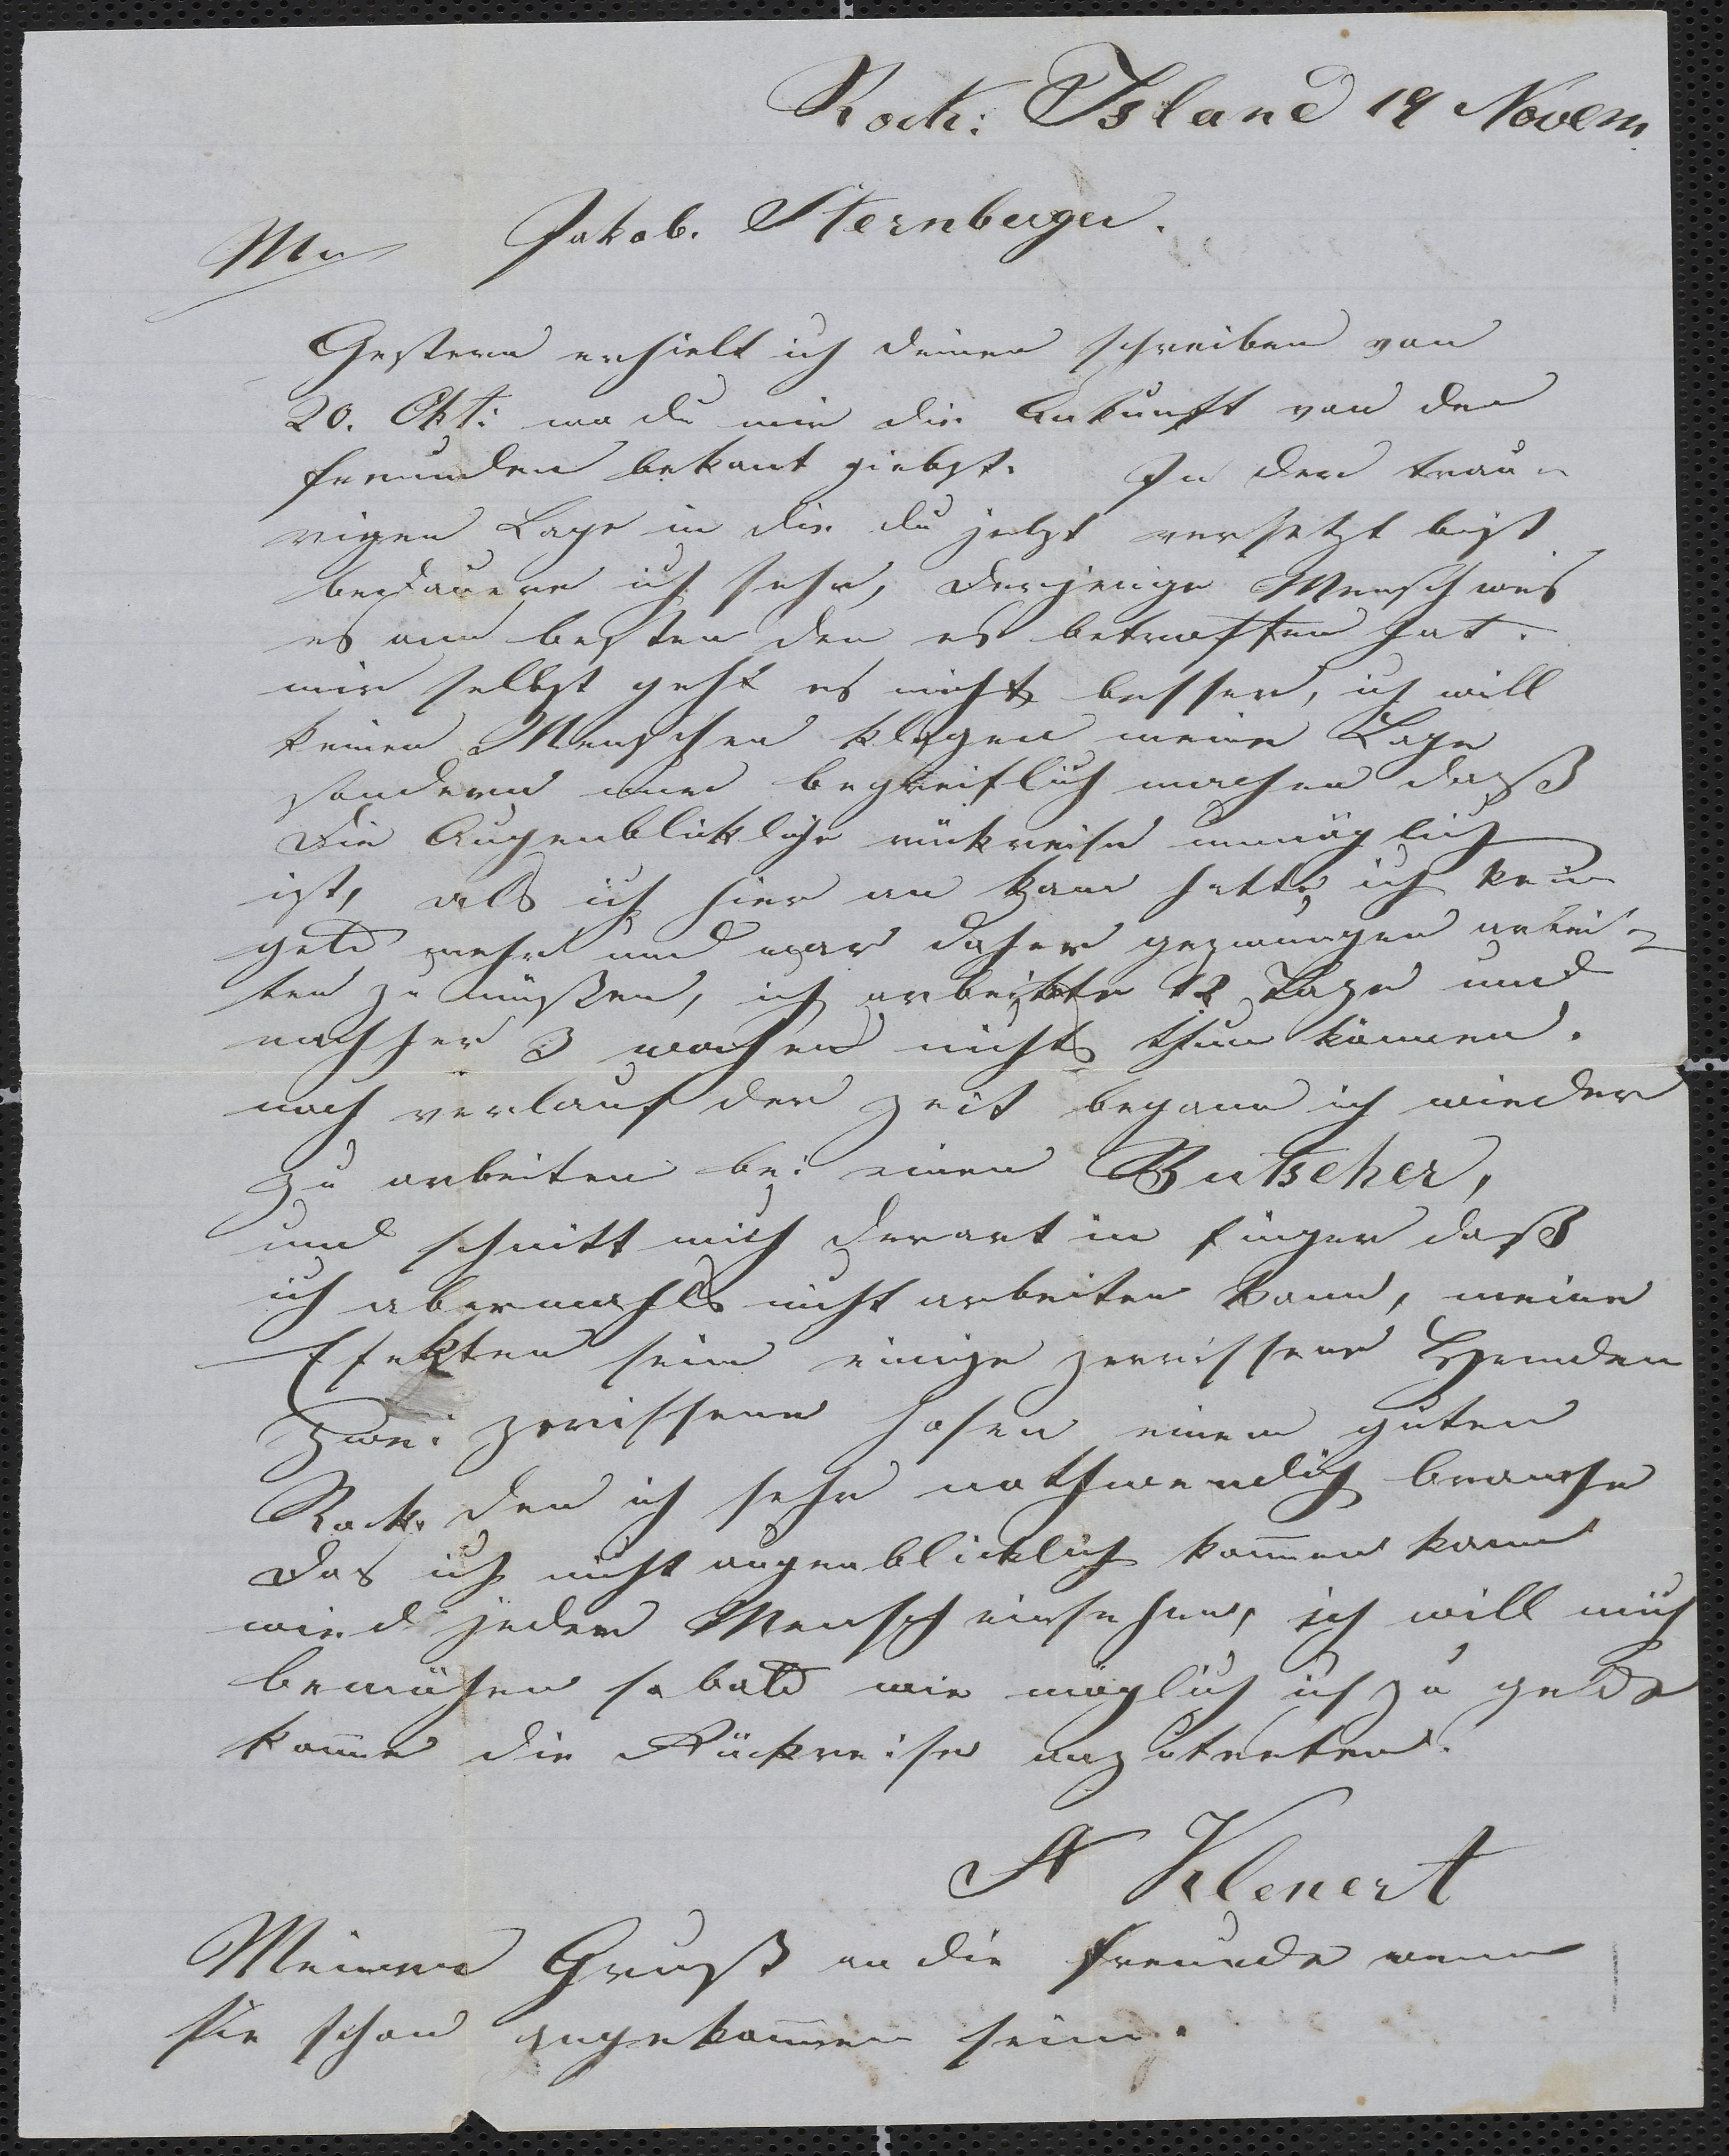 Rock: Island 19 Novem
Mr Jakob. Sternberger.
Gestern erhielt ich deinen schreiben von
20. Okt: wo du mir die Ankunft von den
freunden bekant giebst. In der trau-
rigen Lage in die du jetzt versetzt bist
bedauere ich sehr, derjenige Mensch weis
es am besten den es betroffen hat.
mir selbst geht es nichts besser, ich will
keinen Menschen klagen meine Lage
sondern nur begreiflich machen daß
die Augenblickliche rükreise unmöglich
ist, als ich hier an kam hatte ich kein
geld mehr und war daher gezwungen arbei-
ten zu müßen, ich arbeitete 12 Tage und
nachher 3 wochen nichts thun können.
nach verlauf der Zeit begann ich wieder
zu arbeiten bei einen Butscher,
und schnitt mich derart in finger daß
ich abermahls nicht arbeiten kann, meine
Efekten sein einige zerrissene Hemden
zwei zerrissene hosen einen guten
Rock. den ich sehr nothwendig brauche
das ich nicht augenblicklich kom̅en kann
wird jeder Mensch einsehen, ich will mich
bemühen so bald wie möglich ich zu gelde
kom̅e die Rückreise anzutreten.
A Klenert
Meinen Gruß an die freunde wenn
sie schon angekom̅en sein.